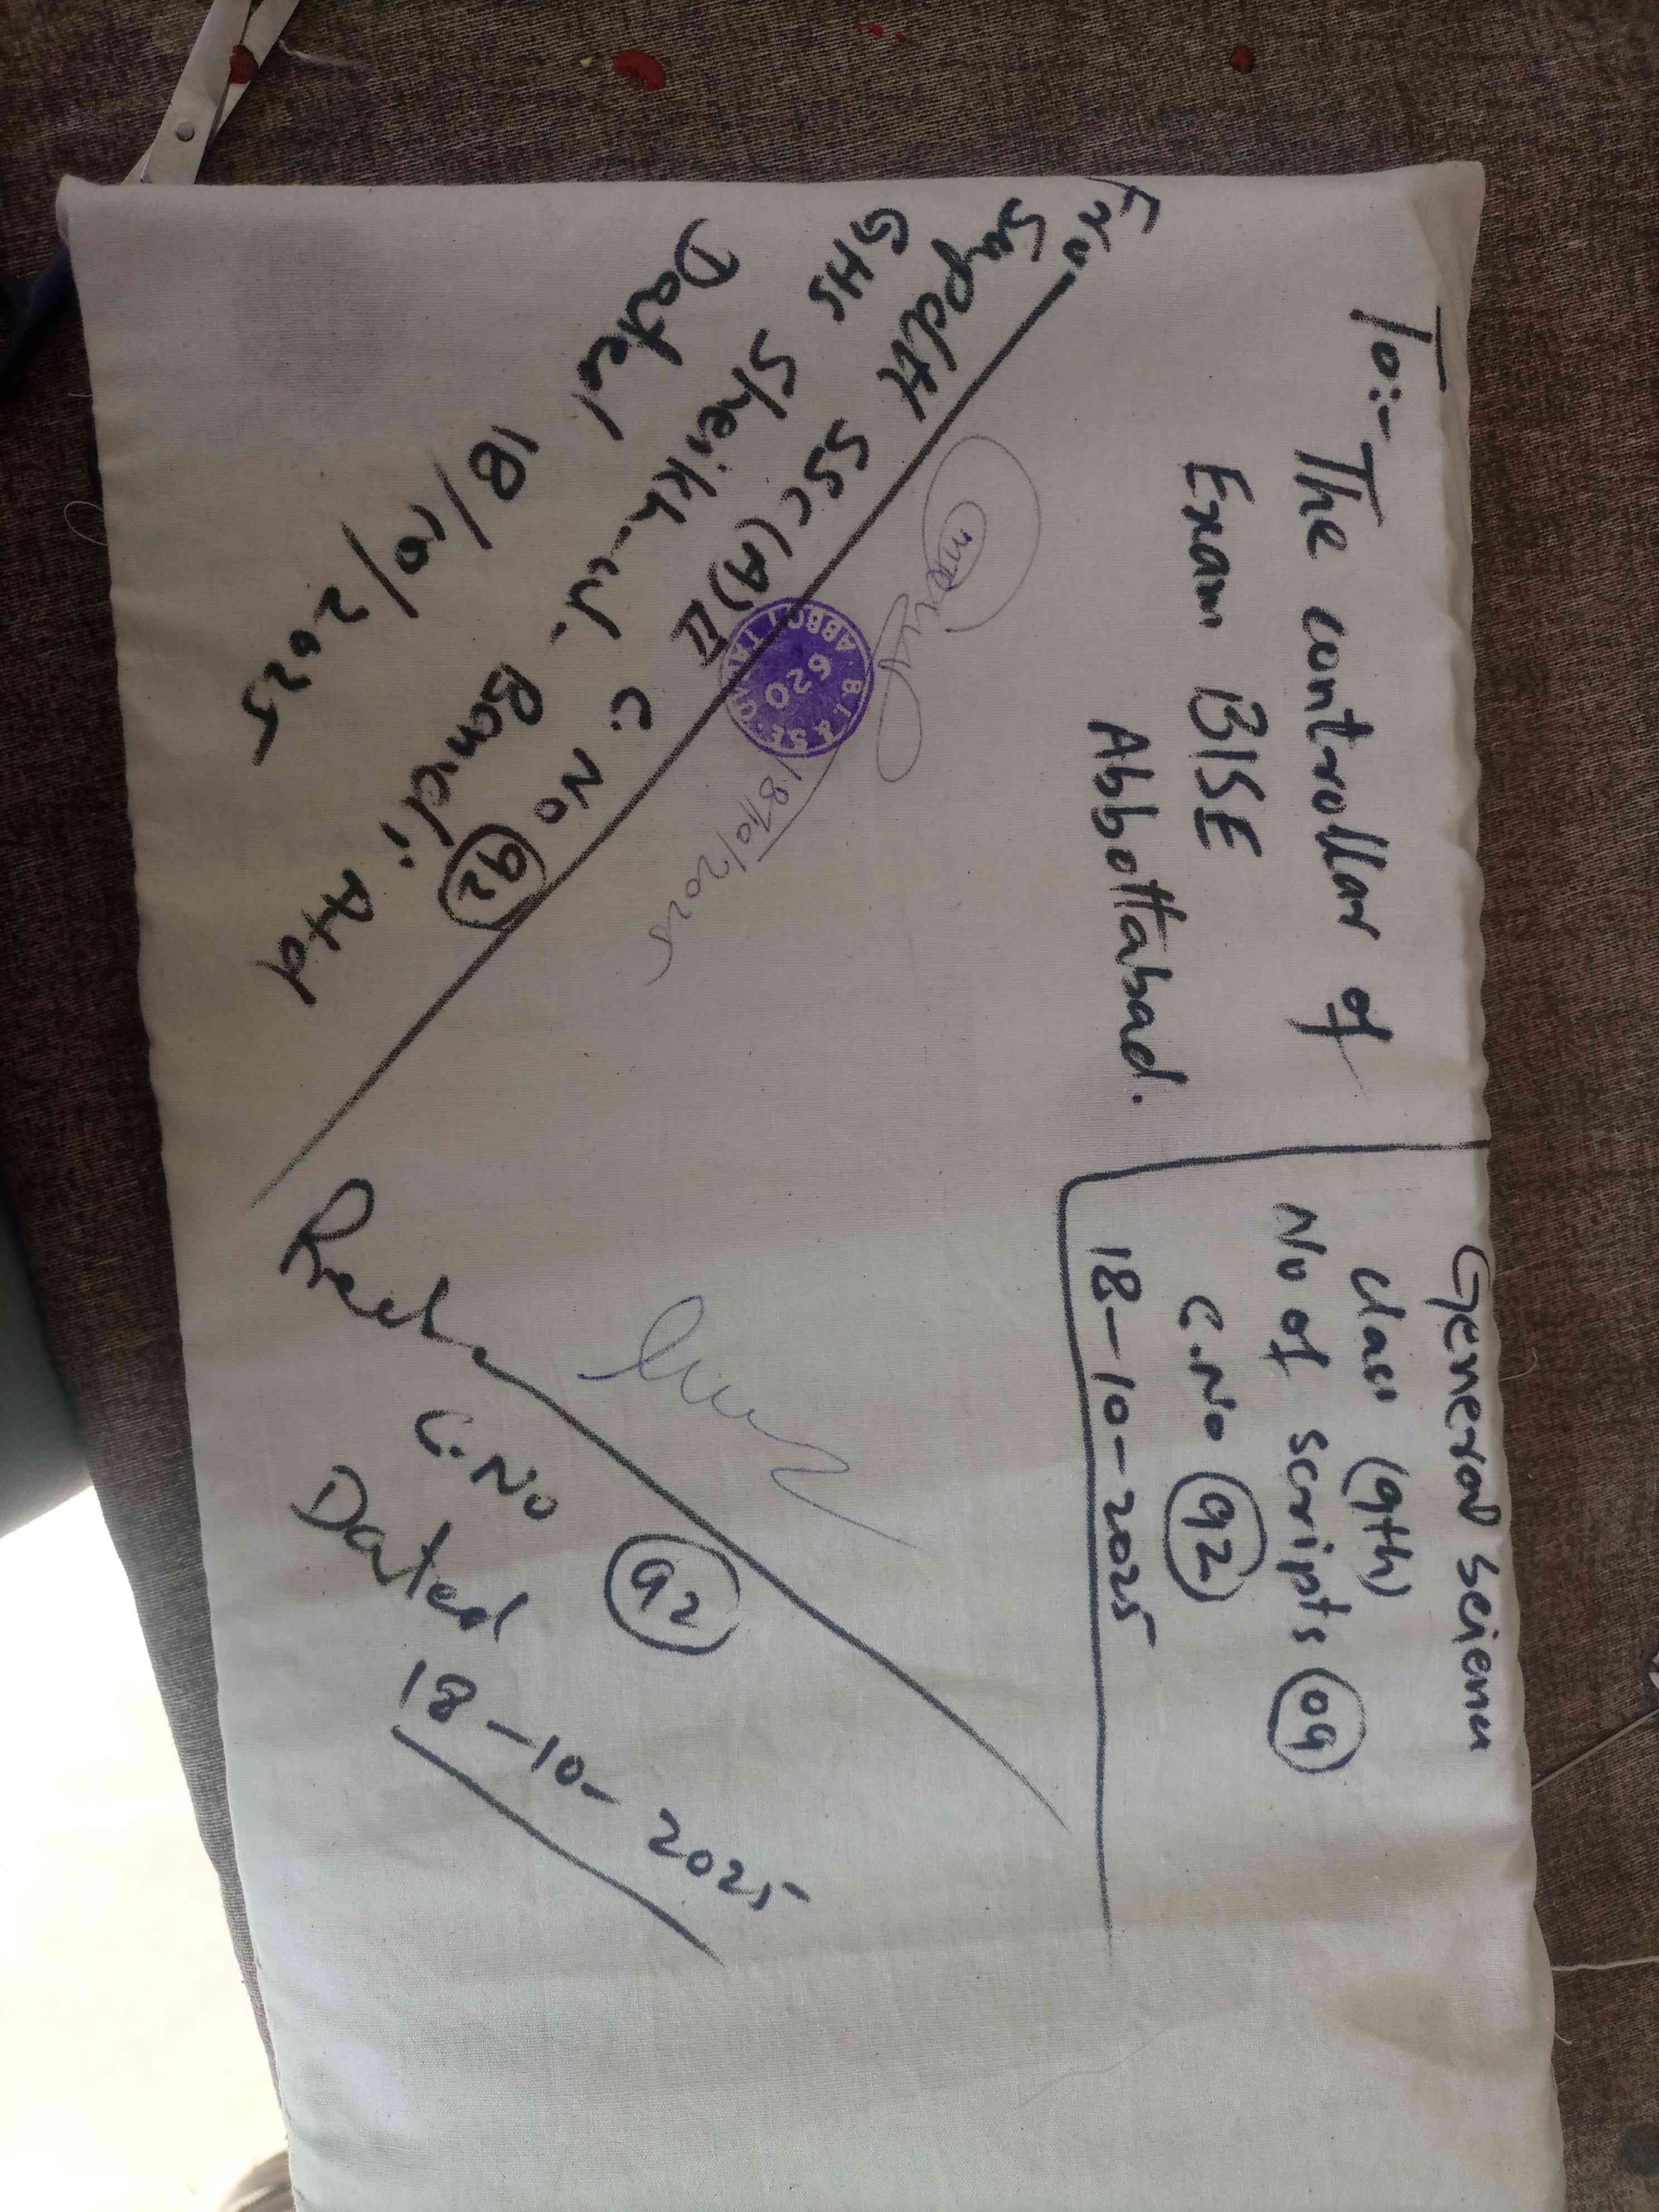 To:- The controllar of
Exam BISE
Abbottabad.
General Science
Class (9th)
No of scripts 09
C.No 92
18-10-2025
From
Supdtt SSC(A)II C.No 92
GHS Sheikh-ul-Bandi Atd
Dated 18/10/2025
B.I & S.E
ABBOTTABAD
620
18/10/2025
C.No 92
Dated 18-10-2025